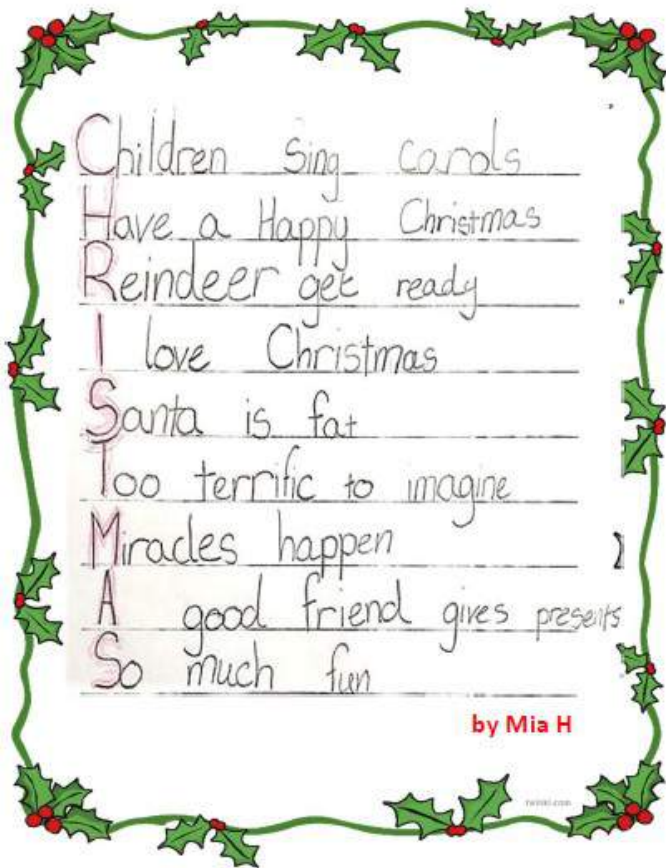 Children sing carols
Have a Happy Christmas
Reindeer get ready
I love Christmas
Santa is fat
Too terrific to imagine
Miracles happen
A good friend gives presents
So much fun
by Mia H
twinkl.com